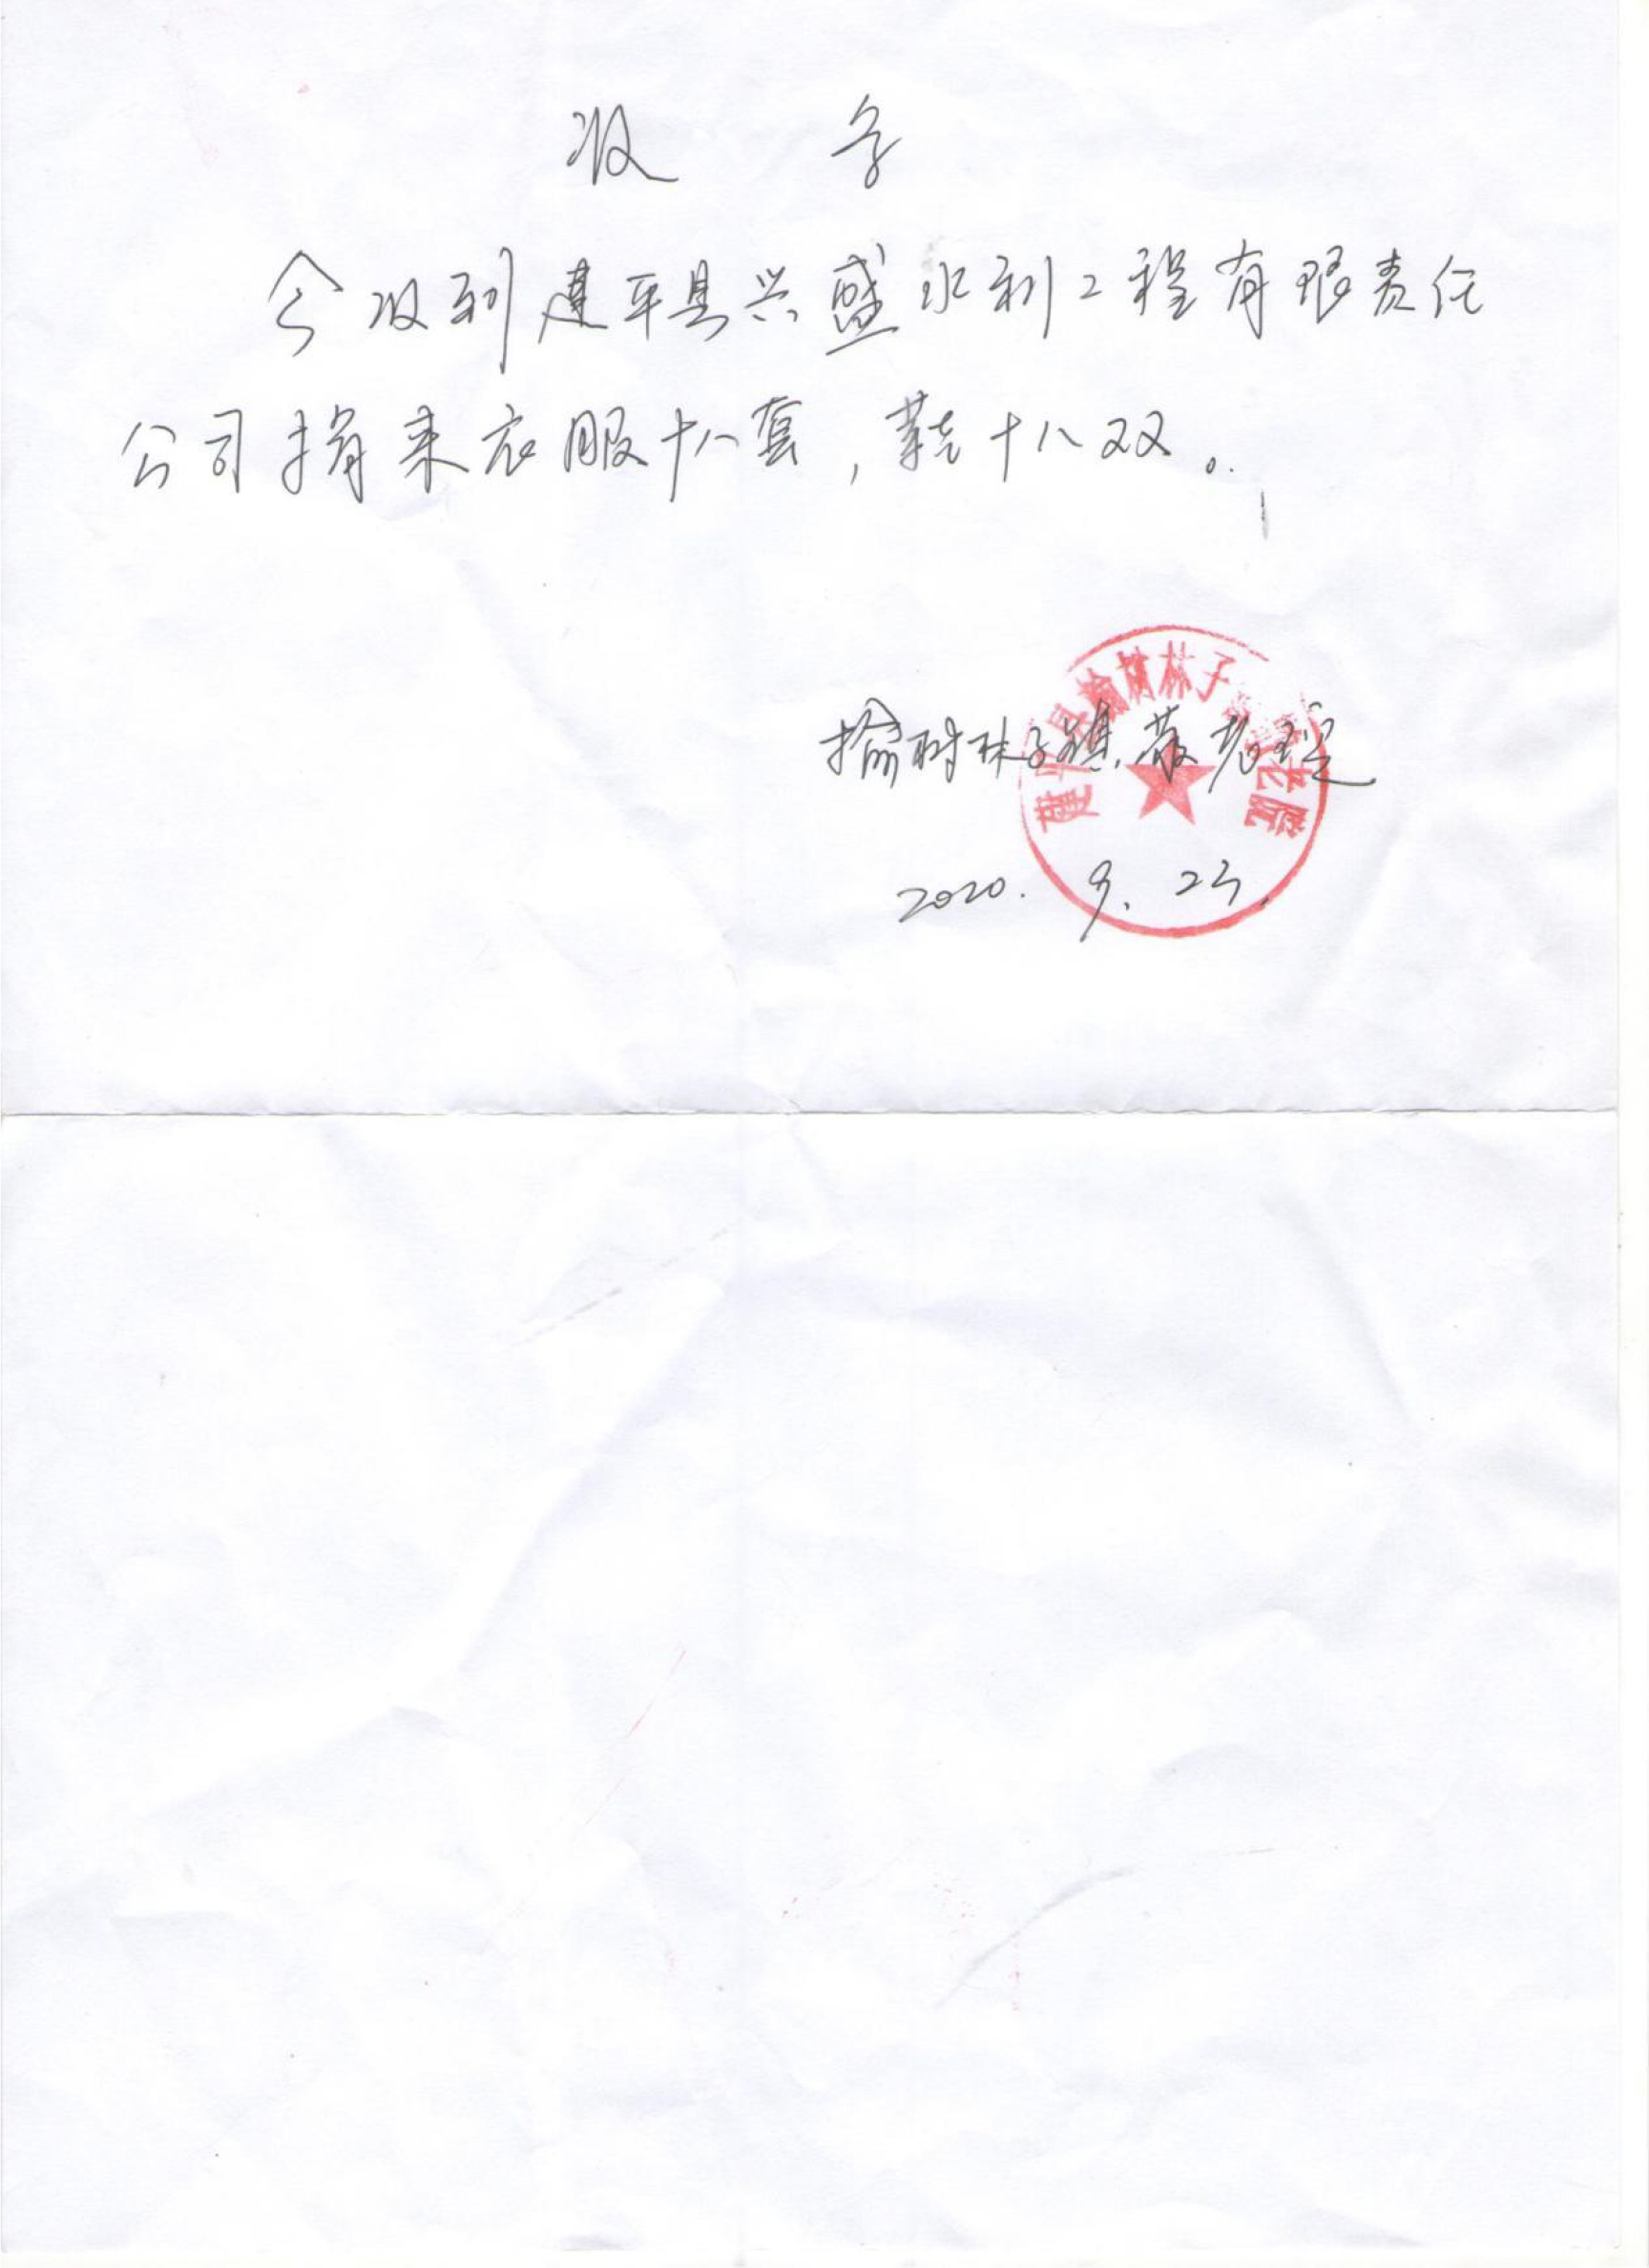 收 条
今收到建平县兴盛水利工程有限责任
公司捐来衣服十八套,鞋十八双。
榆树林子镇敬老院
2020. 9. 23.
建平县榆树林子 老院